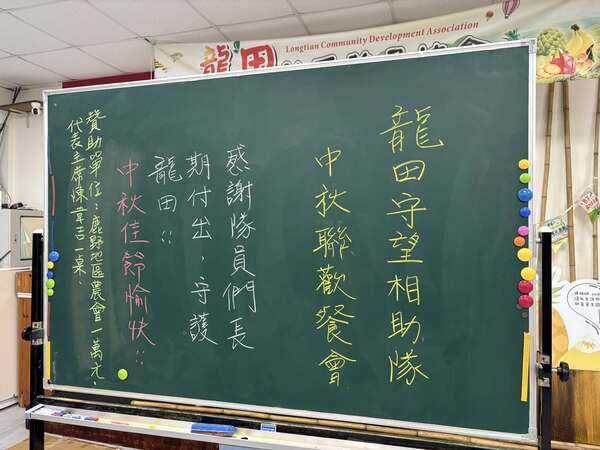 Longtian Community Development Association
龍田
龍田守望相助隊
中秋聯歡餐會
感謝隊員們長
期付出,守護
龍田!!
中秋佳節愉快!!
贊助單位:鹿野地區農會一萬元、
代表主席陳韋吉一桌、